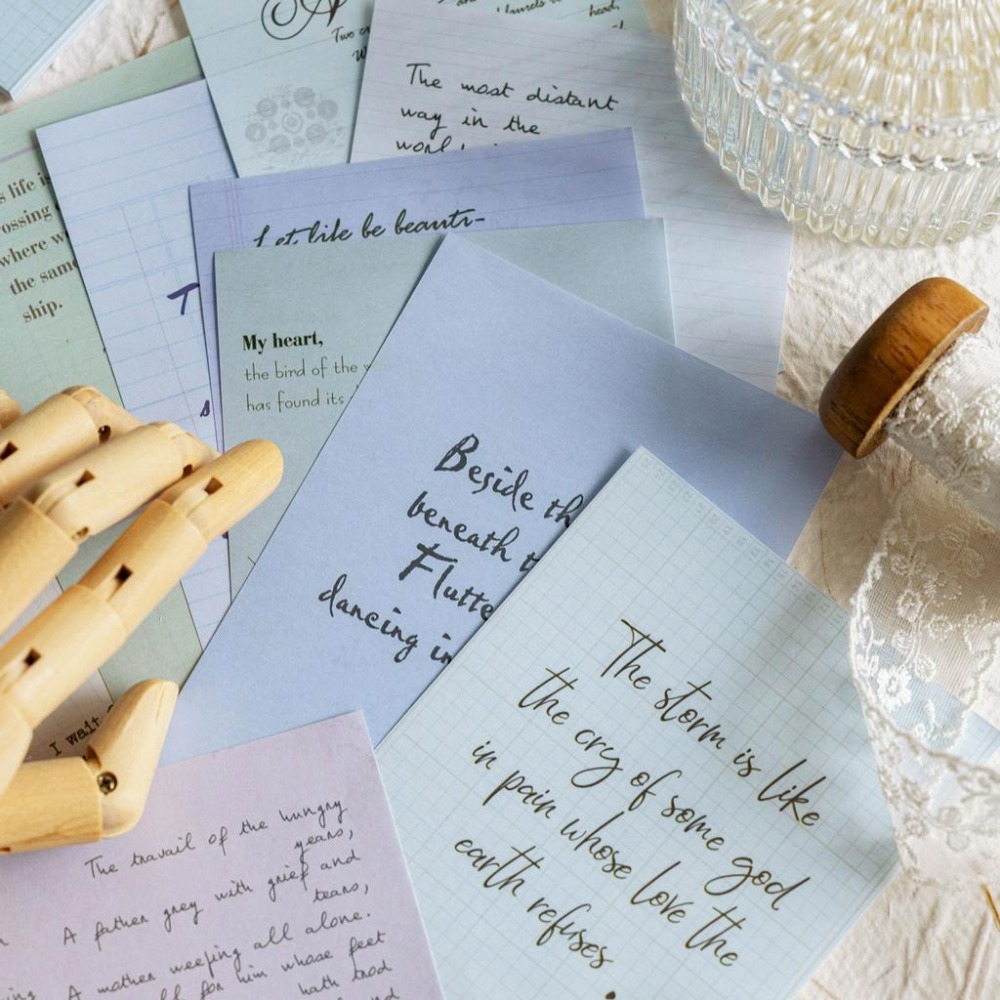 Two
The most distant
way in the
head,
s life is
ossing
where w
the same
ship.
Let life be beauti-
My heart,
the bird of the w
has found its
Beside th
beneath t
Flutte
dancing in
The storm is like
the cry of some god
in pain whose love the
earth refuses
I wait
The travail of the hungry
years,
A father grey with grief and
tears,
A mother weeping all alone.
for him whose feet
hath trod